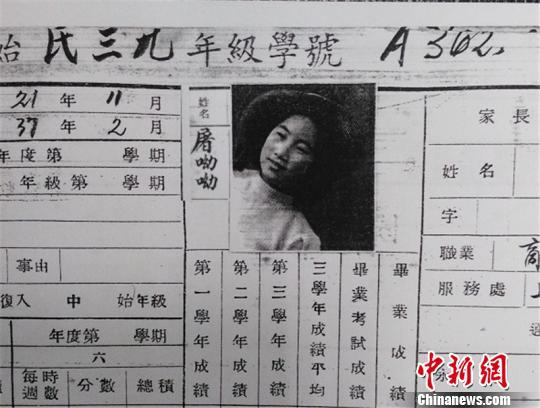 始 民三九 年級學號 A302
21 年 11 月
37 年 2 月
年度第 學期
年級第 學期
事由
復入 中 始年級
年度第 學期
六
每週時數 分數 總積
姓名
屠呦呦
第一學年成績
第二學年成績
第三學年成績
三學年成績平均
畢業考試成績
畢業成績
家長
姓名
字
職業 商
服務處 上
中新网
Chinanews.com